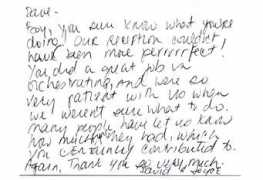 Dave-
Boy, you sure know what you're
doing. Our reception couldn't
have been more perrrrfect!
You did a great job in
orchestrating, and were so
very patient with us when
we weren't sure what to do.
Many people have let us know
how much they had, which
you certainly contributed to.
Again, Thank you so very much.
David & Joyce